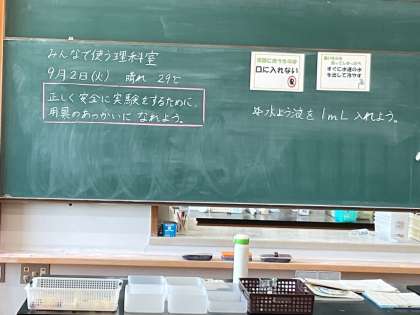 みんなで使う理科室
9月2日(火) 晴れ 29℃
正しく安全に実験をするために、
用具のあつかいに なれよう。
口に入れない
すぐに水道の水
を出して冷やす
水よう液を 1mL 入れよう。